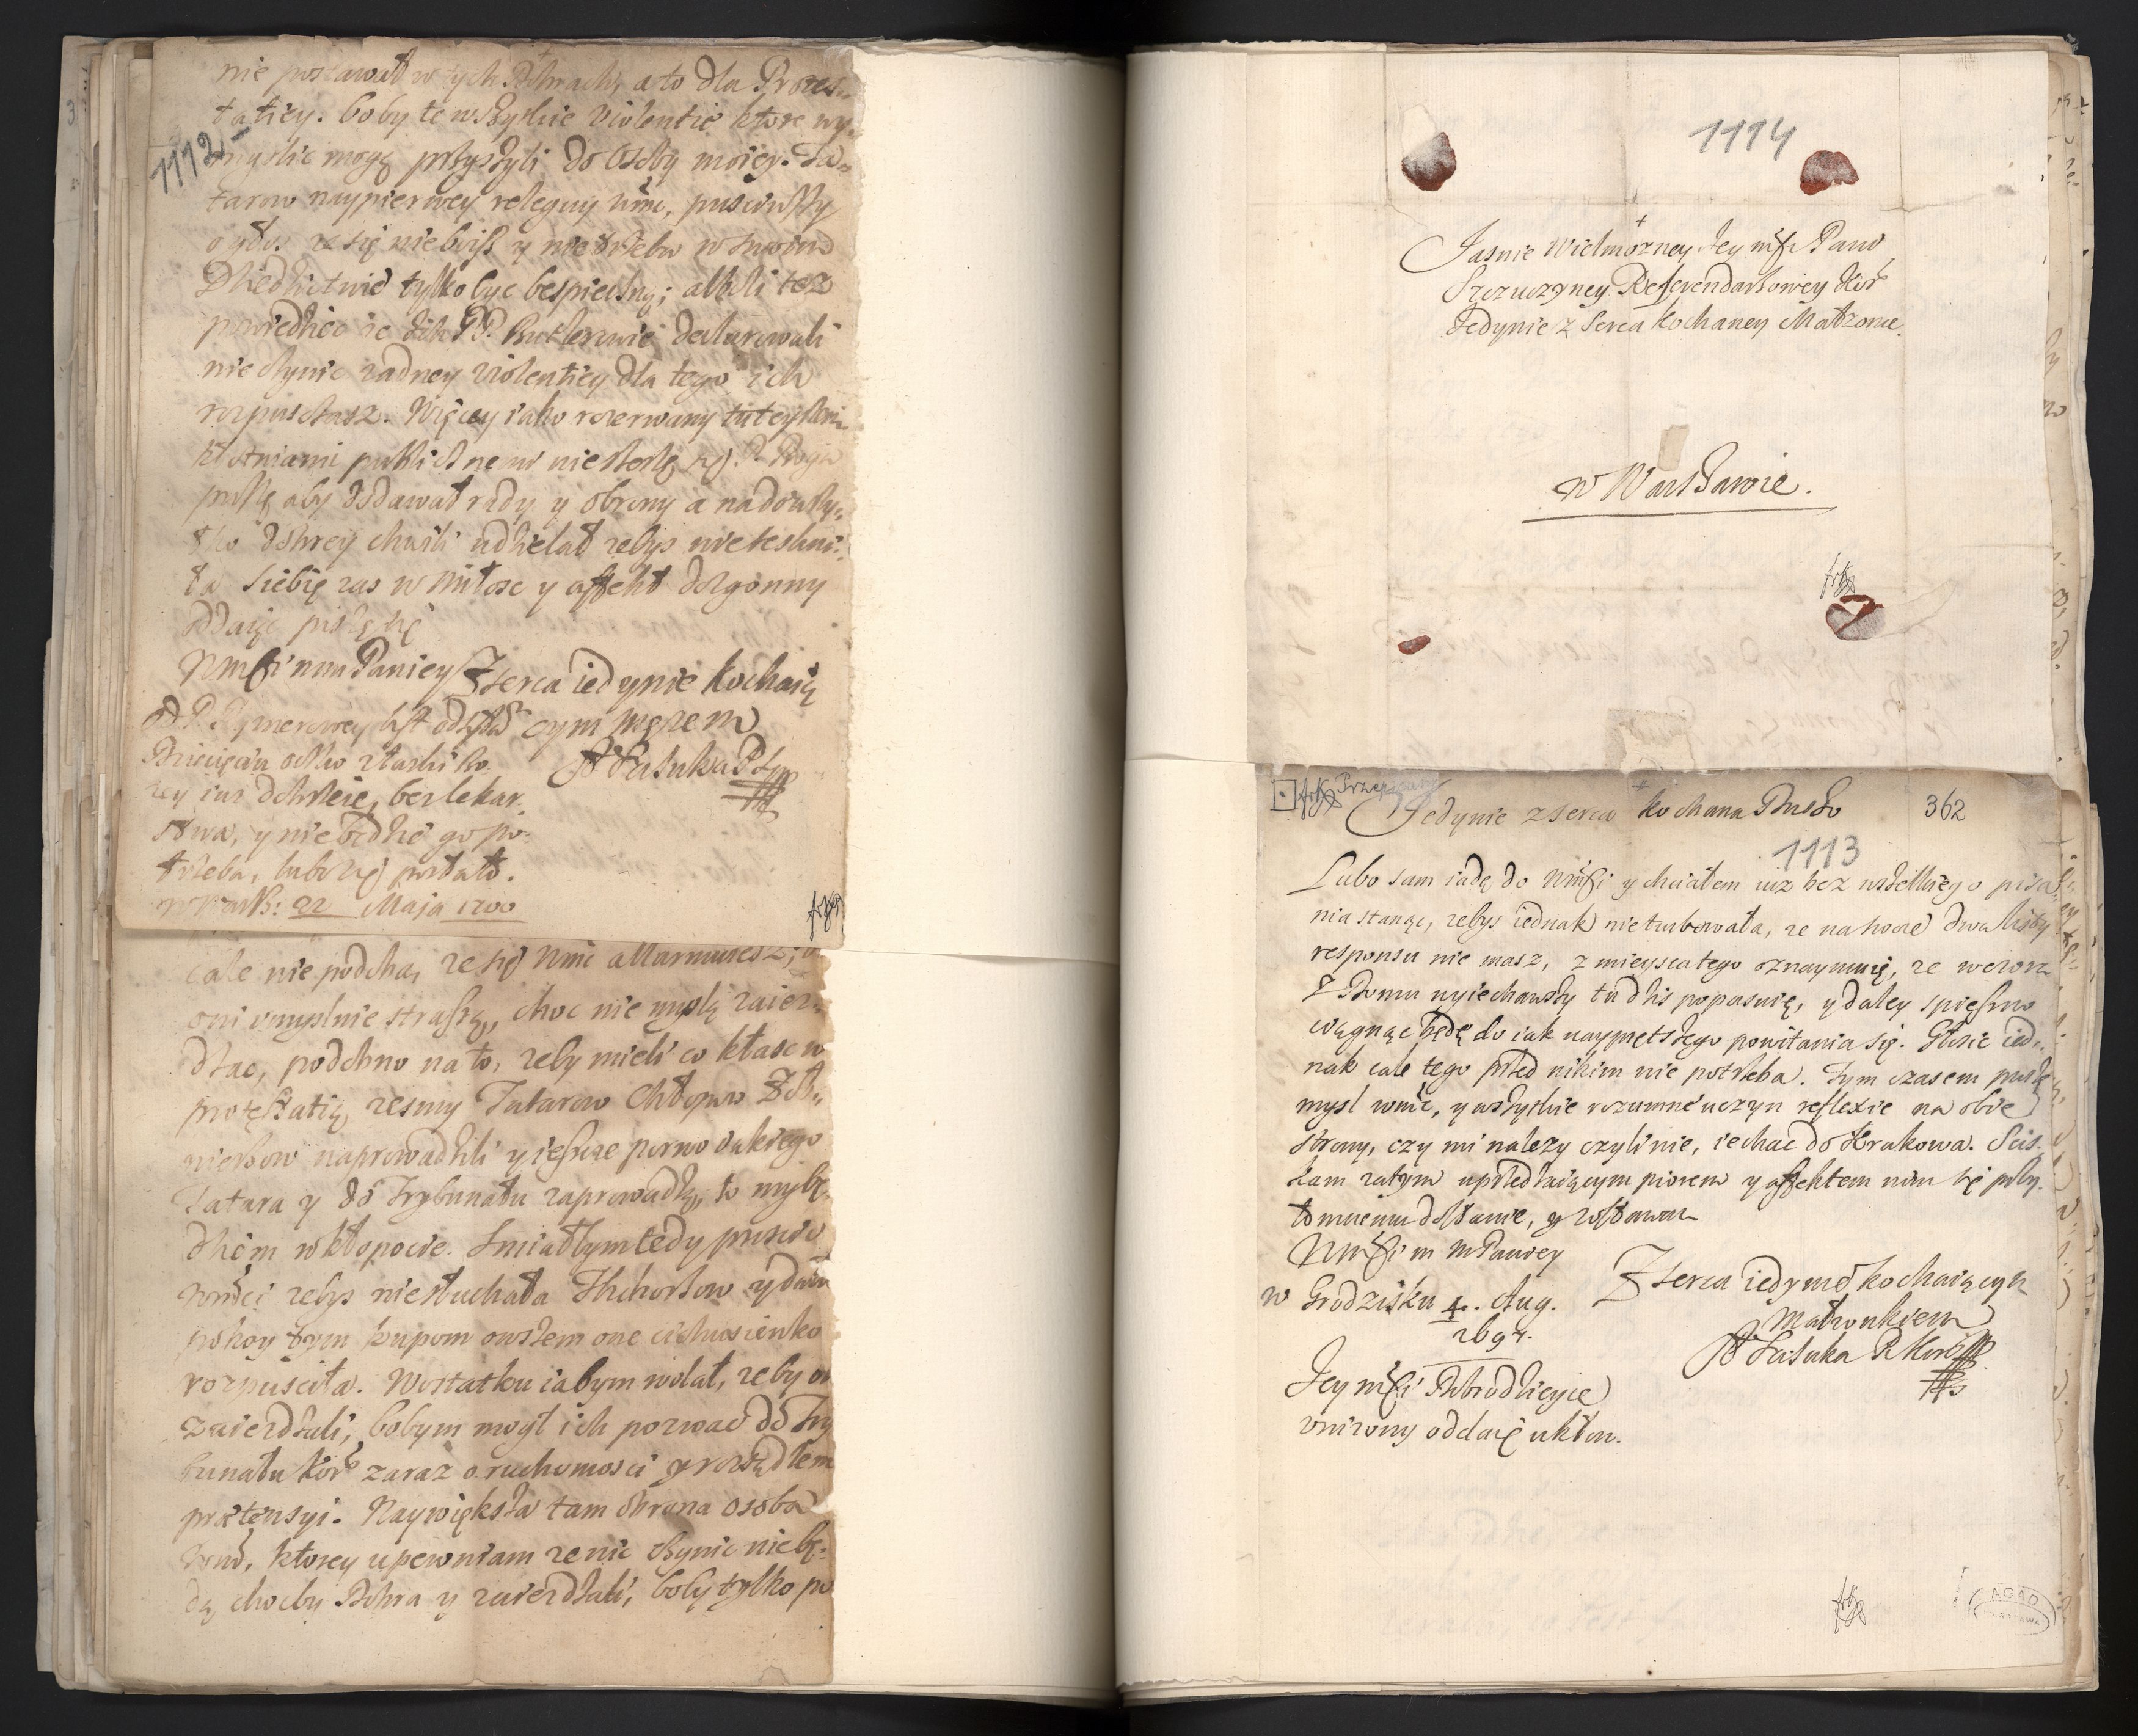 nie postawał w tych Dobrach, a to dla Protes-
tatiey. boby te wszytkie violentie ktore wy-
1112
myslic mogą przyszyli do Osoby moiey. Ta-
tarow naypierwey releguy Wmc, pusciwszy
głos ze się nie boisz y nie trzeba w swoim
Dziedzictwie tylko byc bespieczną; alboli tez
powiedziec ze Ichm PP. Butlerowie declarowali
nie czynic zadney violentiey dla tego ich
rozpusczasz. Więcey iako rozerwany tuteyszemi
kłotniami publicznemi nie szerzę się. P. Boga
proszę aby dodawał rady y obrony a nadewszy-
tko dobrey chwili udzielał zebys nie teskni-
ła Siebie zas w miłosc y affekt dozgonny
oddaiąc piszę się
WmSci mm Paniey
Z serca iedynie kochaią
cym męzem
A Szczuka P
od P. Rymerowey list odesłać
Dziecięciu oczko z łaski Bo
zey iuz dobrzeie, bez lekar
stwa, y nie będzie go po-
trzeba, lubo się psowało.
w Warsz: 22 Maja 1700
cale nie podoba, ze się Wmc allarmuiesz; a
oni umyslnie straszą, choc nie myslą zaiez-
dzac, podobno na to, zeby mieli co kłasc w
protestatią, zesmy Tatarow Chłopow Zoł-
nierzow naprowadzili y ieszcze porwo iakiego
Tatara y do Trybunału zaprowadzą, to my bę-
dziem w kłopocie. Zmiałbym tedy prosic
Wmsci zebys nie słuchała Tchorzow y dała
pokoy tym kupom owszem one cichusienko
rozpusciła. W ostatku iabym wolał, zeby on
zaiezdzali, bobym mogł ich pozwac do Try
bunału Kor zaraz o ruchomosci y
prætensyi. Naywięksża tam obrona osoba
Wmc, ktorey upewniam ze nic czynic nie bę-
dą chocby Dobra y zaiezdzali, boby tylko po
1114
Jasnie Wielmozney Jey mSci Pani
Szczuczyney Referendarzowey Kor
Jedynie z Serca Kochaney Małzonce.
w Warszawie.
Przepisany
Jedynie z serca kochana Duszo
362
1113
Lubo sam iadę do WmSci y chciałem iuz bez wszelkiego pisa-
nia stanąc, zebys iednak nie turbowała, ze na twoie dwa listy
responsu nie masz, z mieysca tego oznaymuię, ze wczora
z Domu wyiechawszy tu dzis popasuię, y daley spieszno
ciągnąc będę do iak nayprętszego powitania się. Głosic ied-
nak cale tego przed nikim nie potrzeba. Tym czasem proszę
mysl Wmc, y wszytkie rozumne uczyn reflexie na obie
strony, czy mi nalezy czyli nie, iechac do Krakowa. Scis-
kam zatym uprzedzaiącym piorem y affektem nim się przy-
tomnemu dostanie, y zostawam
WmSci m mPaniey
Z serca iedynie kochaiącym
Małzonkiem
A Szczuka R Kor
w Grodzisku 4. Aug.
1694.
Jey mSci Dobrodzieyce
unizony oddaię ukłon.
AGAD
WARSZAWA